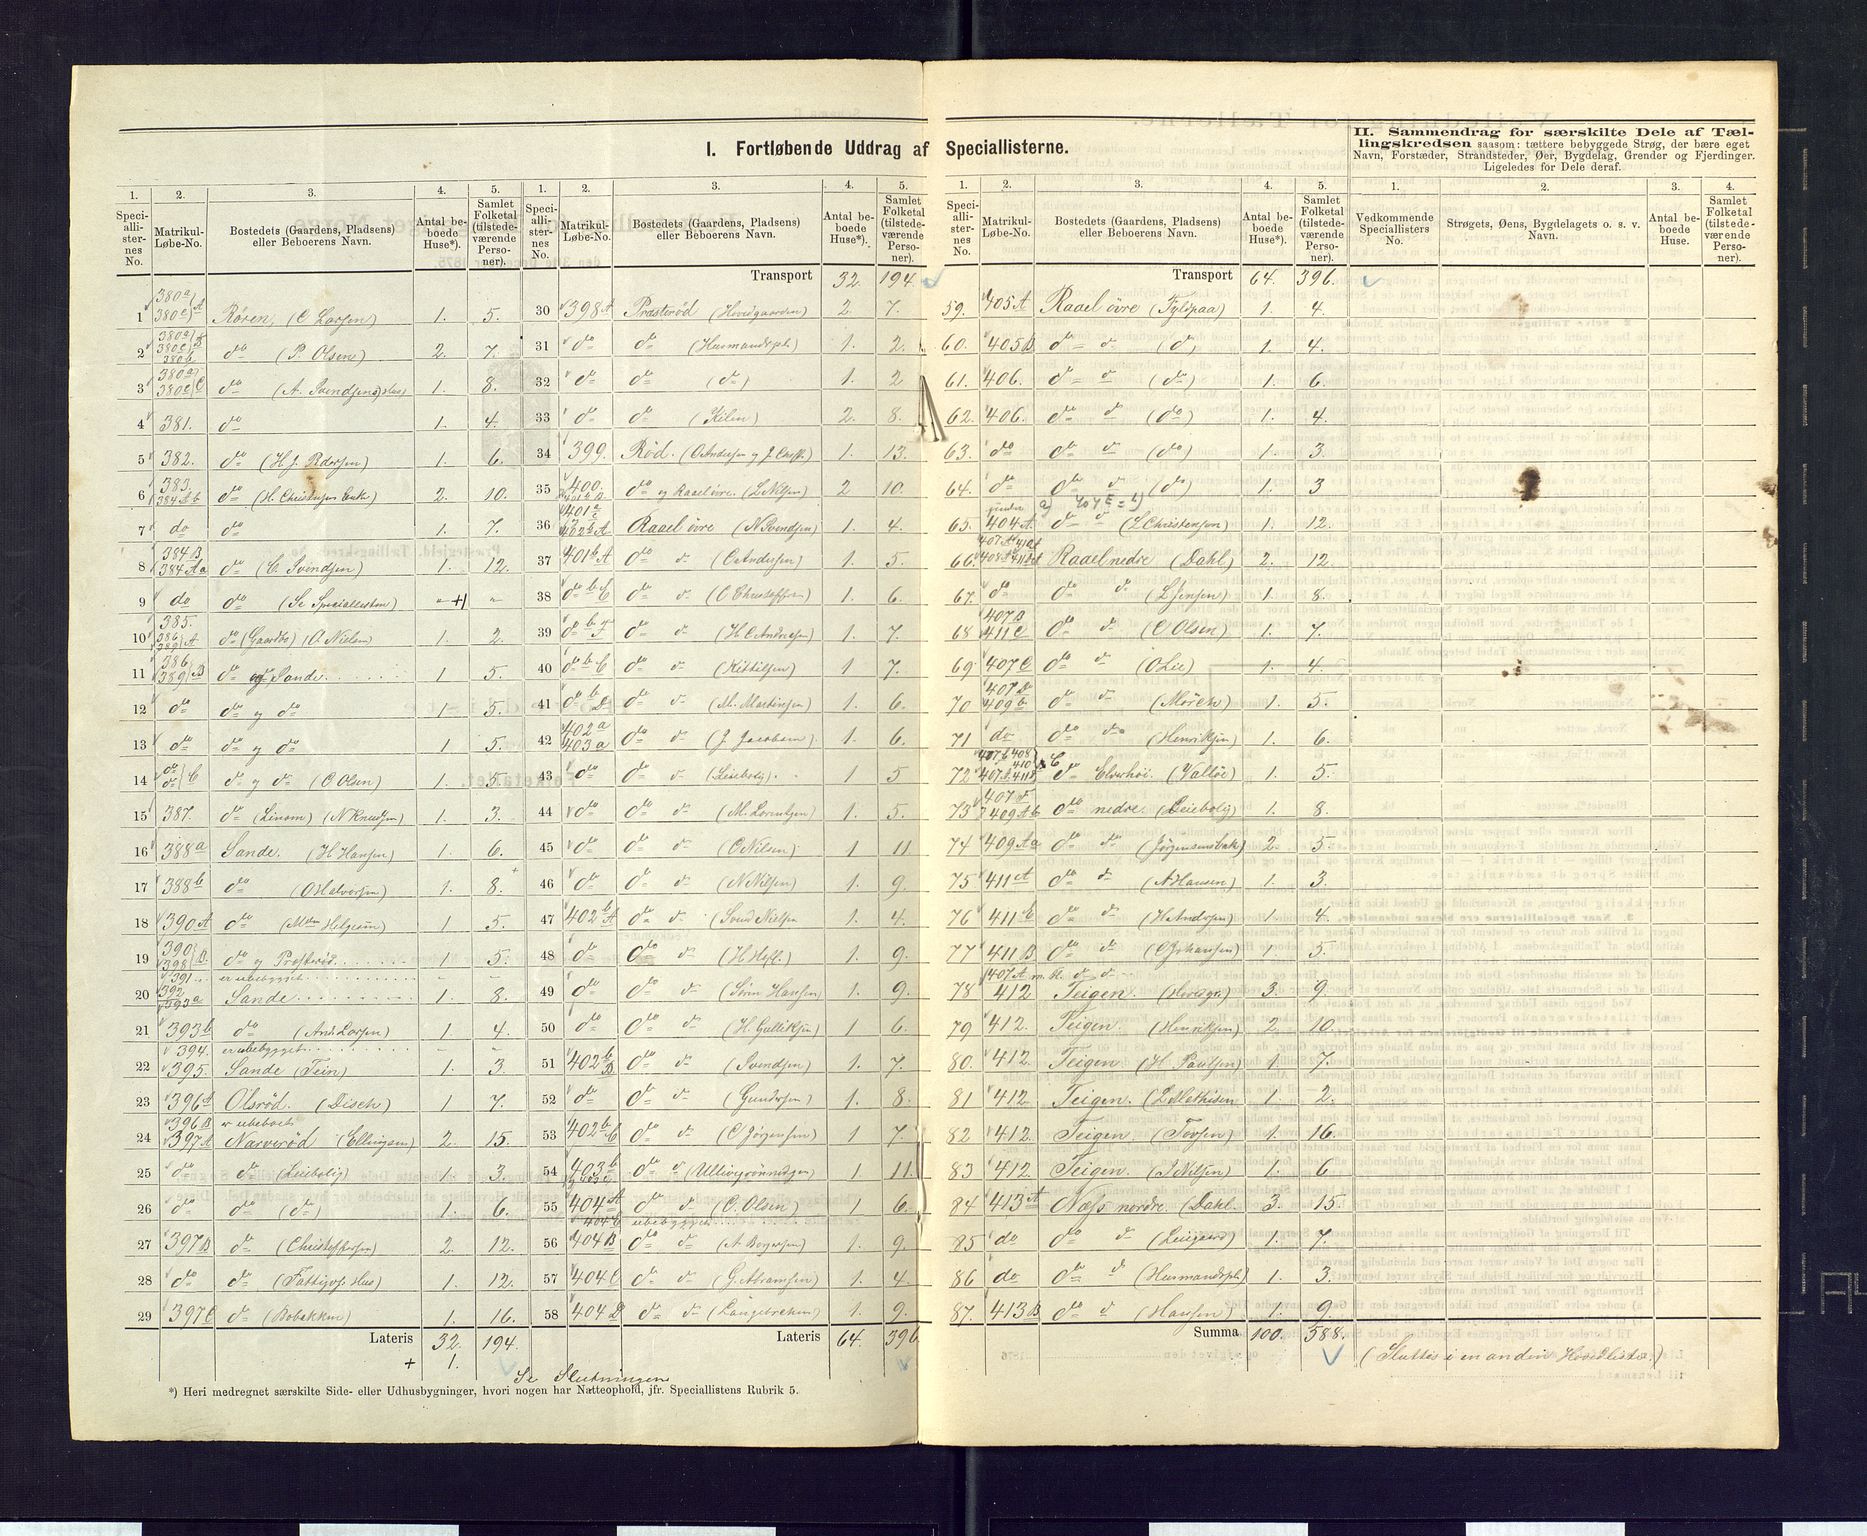 I. Fortløbende Uddrag af Speciallisterne.
II. Sammendrag for særskilte Dele af Tællingskredsen saasom: tættere bebyggede Strøg, der bære eget
Navn, Forstæder, Strandsteder, Øer, Bygdelag, Grender og Fjerdinger.
Ligeledes for Dele deraf.
1. 2. 3. 4. 5.
Speciallisternes No. Matrikul-Løbe-No. Bostedets (Gaardens, Pladsens) eller Beboerens Navn. Antal beboede Huse*). Samlet Folketal (tilstedeværende Personer).
1 380a 380c A Røren, (C Larsen) 1. 5.
2 380a 380c 380b B do (P. Olsen) 2. 7.
3 380a 380c C do (A. Svendsens Hus) 1. 8.
4 381. do 1. 4.
5 382. do (H J. Pedersen) 1. 6.
6 383. 384Ab do (H. Christensen Enke) 2. 10.
7 do do 1. 7.
8 384B 384Aa do (C. Svendsen) 1. 12.
9 do do (Se Speciallisten) - +1 -
10 385. 386 389 A do (Gaardbo) (A. Nielsen) 1. 2.
11 386 389 B do og Sande 1 5.
12 do do og do 1 5.
13 do do og do 1 5.
14 do do C do og do (C Olsen) 1. 5.
15 387. do (Linom) (N Knudsen) 1. 3.
16 388a Sande. (H Hansen) 1. 6.
17 388b do (O Halversen) 1. 8.
18 390A do (Mdm Helgesen) 1 5.
19 390 398 B. do og Præsterød 1 5.
391. er ubebygget - -
20 392 393a Sande 1. 8.
21 393b do (And. Larsen) 1 4.
394. er ubebygget - -
22 395. Sande (Tein) 1. 3.
23 396A Olsrød. (Disch) 1 7.
396B er ubeboet
24 397A Narverød (Ellingsen) 2. 15.
25 do do (Leiebolig) 1. 3.
26 do do (do) 1. 6.
27 397B do (Christoffersen) 2. 12.
28 do do (Fattigvs. Hus) 1. 12.
29 397C do (Bobakken) 1. 16.
Lateris 32. 194.
+ 1.
Se Slutningen
*) Heri medregnet særskilte Side- eller Udhusbygninger, hvori nogen har Natteophold, jfr. Speciallistens Rubrik 5.
1. 2. 3. 4. 5.
Speciallisternes No. Matrikul-Løbe-No. Bostedets (Gaardens, Pladsens) eller Beboerens Navn. Antal beboede Huse*). Samlet Folketal (tilstedeværende Personer).
Transport 32. 194
30 398A Præsterød (Hovedgaarden) 2. 7.
31 do do (Husmandspl.) 1. 2.
32 do do (do) 1. 2
33 do do (Kilen) 2. 8.
34 399. Rød. (O Andersen og J. Chrffs.) 1. 13.
35 400. do og Raael övre. (L Nilsen) 2 10.
36 402bA Raael övre (N Svendsen) 1 4.
37 401bA do do (C Andersen) 1. 5.
38 do b C do do (O Christoffers.) 1. 6.
39 do b F do do (H C Andresen) 1. 7.
40 do b C do do (Kittilsen) 1 7.
41 do b D do do (M. Martinsen) 1. 6.
42 402a 403a do do (J. Jacobsen) 1. 6.
43 do do do (Leiebolig) 1 5
44 do do do (M. Lorentzen) 1. 5.
45 do do do (O Nilsen) 1 11
46 do do do (N Nilsen) 1. 9.
47 402bA do do (Svend Nielsen 1. 4.
48 do do do (H Heft.) 1. 9.
49 do do do (Sören Hansen) 1. 9.
50 do do do (H. Gulliksen) 1 6.
51 402bB do do (Svendsen) 1. 7.
52 do do do (Gundersen) 1. 8.
53 402bC do do (C Jørgensen) 1 7.
54 403b do do (Ullingrönningen) 1 11.
55 404A do do (C. Olsen) 1 6.
ubebygget
56 404B do do (A Borgersen) 1. 9.
57 404C do do (G. Abramsen) 1. 4
58 404D do do (Langebrekene) 1. 9.
Lateris 64. 396
1. 2. 3. 4. 5.
Speciallisternes No. Matrikul-Løbe-No. Bostedets (Gaardens, Pladsens) eller Beboerens Navn. Antal beboede Huse*). Samlet Folketal (tilstedeværende Personer).
Transport 64. 396.
59. 405A Raael övre (Fyldpaa) 1. 4.
60. 405B do do (do) 1. 4.
61. 406. do do (do) 1. 6.
62. 406. do do (do) 1. 4.
63. do do do (do) 1. 3.
64. do do do (do) 1. 3
65. 404A. do do (L Christensen) 1. 12.
66. Raael nedre (Dahl) 2. 12.
67. do do do (L Jensen) 1. 8.
68 407B 411C do do (C Olsen) 1. 7.
69. 407C do do (O Lie) 1. 4.
70 407D 409b. do do (Mörch) 1. 5.
71 do do do (Henriksen) 1. 6.
72 do Elverhöi. (Vallöe) 1. 5.
73 407F 409Ab do nedre. (Leiebolig) 1. 8
74 409Aa do do (Jørgensensbak) 2. 5.
75 411A do do (A Hansen) 1. 3.
76 411b do do (H Andersen) 1. 4.
77 411B do do (C Johansen) 1. 3.
407A m. fl. do do
78 412 Teigen. (Hovedgr.) 3. 9.
79 412. Teigen. (Henriksen) 2. 10.
80. 412 Teigen (H. Paulsen) 1. 7.
81 412 Teigen. (L Mathisen 1. 2.
82 412. Teigen. (Torsen) 1. 16.
83 412 Teigen. (J. Nilsen) 1. 6
84 413A Næss nordre. (Dahl. 3. 15.
85 do do do (Leiegaard) 1. 7.
86 do do do (Husmandspl.) 1. 3.
87. 413B do do (Hansen) 1. 9.
Summa 100. 588.
1. 2. 3. 4.
Vedkommende Speciallisters No. Strøgets, Øens, Bygdelagets o. s. v. Navn. Antal beboede Huse. Samlet Folketal (tilstedeværende Personer).
(Sluttes i en anden Hovedliste.)